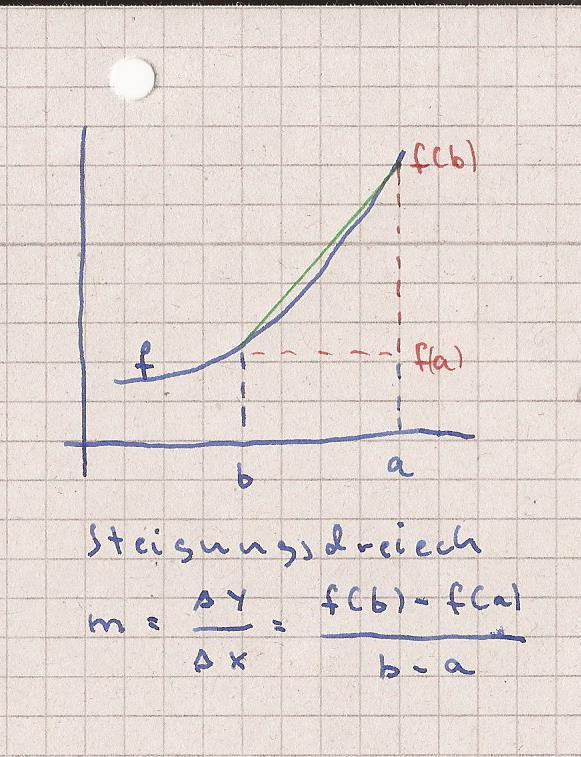 f(b)
f
f(a)
b a
Steigungsdreiech
m = ΔY/ΔX = f(b) - f(a)/b - a